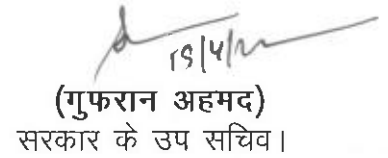 (गुफरान अहमद)
सरकार के उप सचिव।